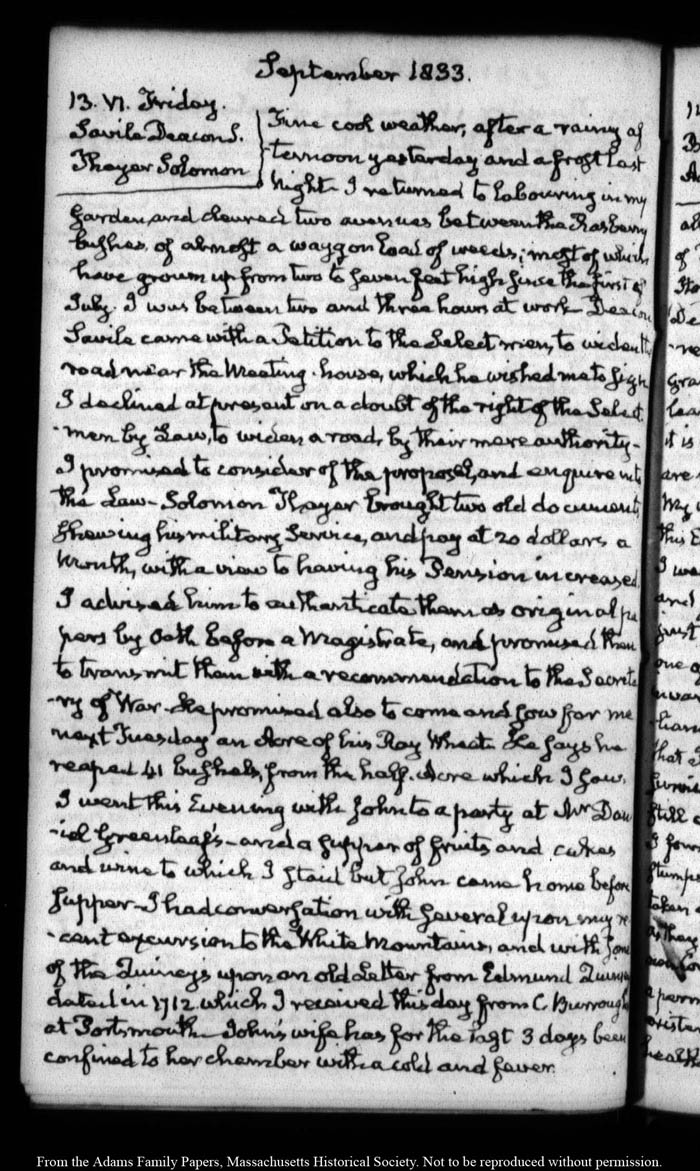 September 1833.
13. VI. Friday.
Savile Deacon S.
Thayer Solomon
Fine cool weather, after a rainy af
-ternoon yesterday and a frost last
night. I returned to labouring in my
garden, and cleared two avenues between the Rasberry
bushes, of almost a waggon load of weeds; most of which
have grown up from two to seven feet high since the first of
July. I was between two and three hours at work. Deacon
Savile came with a Petition to the Select men, to widen the
road near the Meeting-house, which he wished me to sign
I declined at present on a doubt of the right of the Select
-men by Law, to widen a road, by their mere authority-
I promised to consider of the proposal, and enquire into
the Law- Solomon Thayer brought two old documents,
shewing his military Service, and pay at 20 dollars a
Month, with a view to having his Pension increased.
I advised him to authenticate them as original pa
pers by Oath before a Magistrate, and promised then
to transmit them with a recommendation to the Secreta
-ry of War- He promised also to come and sow for me
next Tuesday an Acre of his Ray Wheat. He says he
reaped 41 bushels, from the half-Acre which I saw.
I went this Evening with John to a party at Mr Dan
-iel Greenleaf's- and a supper of fruits and cakes
and wine to which I staid but John came home before
supper- I had conversation with several upon my re
-cent excursion to the White Mountains, and with some
of the Quincy's upon an old Letter from Edmund Quincy
dated in 1712 which I received this day from C. Burroughs
at Portsmouth- John's wife has for the last 3 days been
confined to her chamber with a cold and fever.
From the Adams Family Papers, Massachusetts Historical Society. Not to be reproduced without permission.